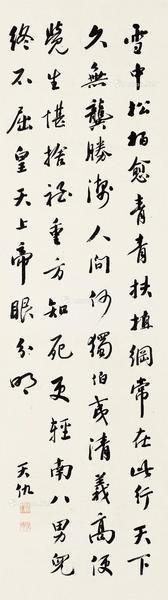 雪中松柏愈青青扶植綱常在此行天下
久無龔勝潔人間何獨伯夷清義高便
覺生堪捨禮重方知死更輕南八男兒
終不屈皇天上帝眼分明
天仇